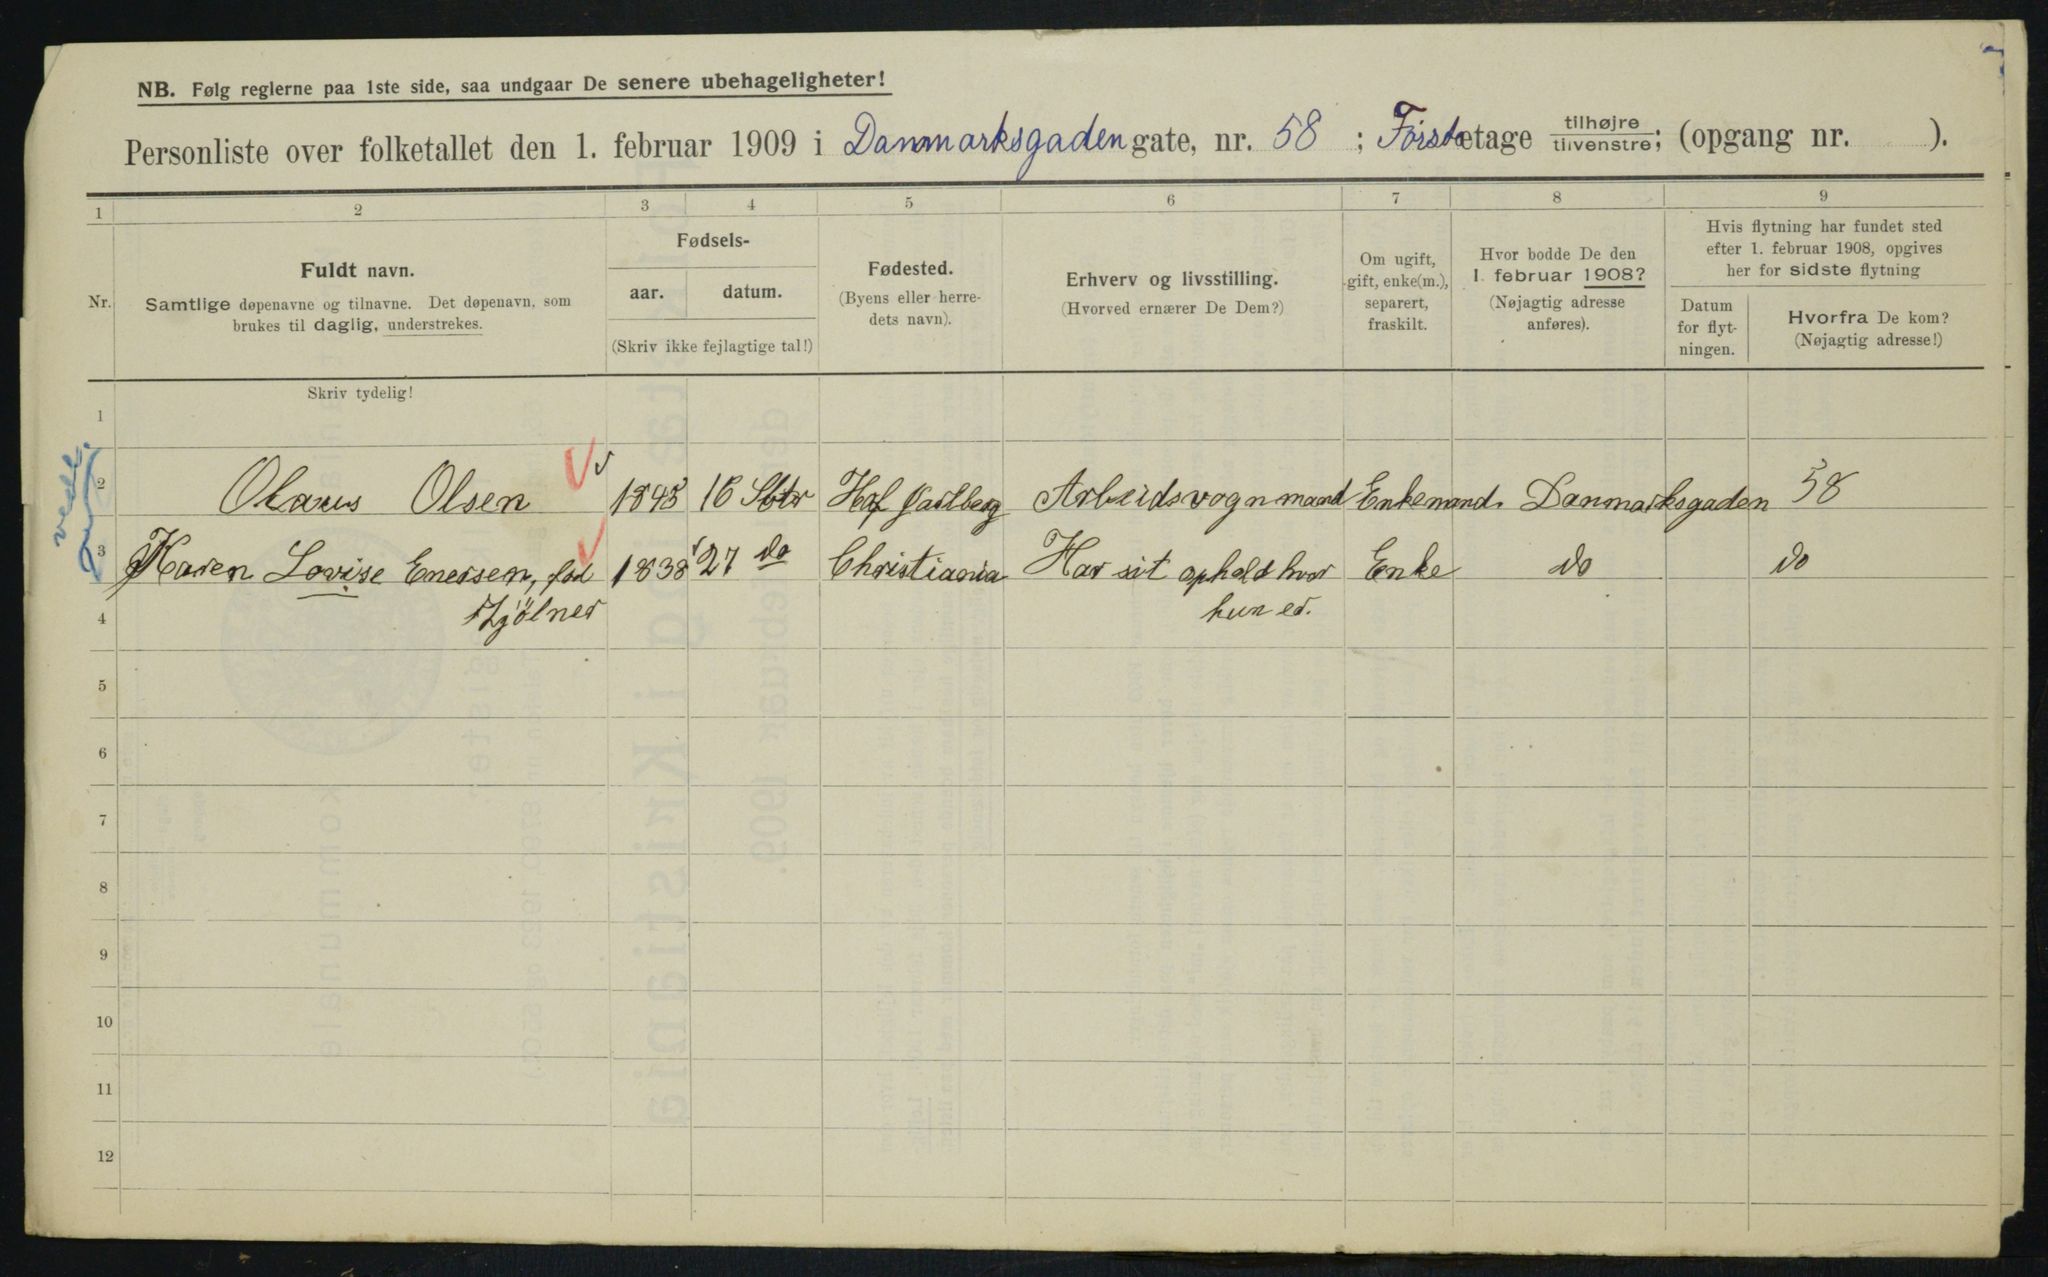 NB. Følg reglerne paa 1ste side, saa undgaar De senere ubehageligheter!
Personliste over folketallet den 1. februar 1909 i Danmarksgaden gate, nr. 58 ; Første etage tilhøjre tilvenstre; (opgang nr. ).
1 2 3 4 5 6 7 8 9
Nr.
Fuldt navn.
Samtlige døpenavne og tilnavne. Det døpenavn, som
brukes til daglig, understrekes.
Fødsels-
aar. datum.
(Skriv ikke fejlagtige tal!)
Fødested.
(Byens eller herre-
dets navn).
Erhverv og livsstilling.
(Hvorved ernærer De Dem?)
Om ugift,
gift, enke(m.),
separert,
fraskilt.
Hvor bodde De den
1. februar 1908?
(Nøjagtig adresse
anføres).
Hvis flytning har fundet sted
efter 1. februar 1908, opgives
her for sidste flytning
Datum
for flyt-
ningen.
Hvorfra De kom?
(Nøjagtig adresse!)
Skriv tydelig!
1
2 Olaus Olsen 1843 16 Sbtr Jarlberg Arbeidsvognmand Enkemand. Danmarksgaden 58
3 Karen Lovise Enersen, fød 1838 27 do Christiania Har sit ophold hvor Enke do do
4 hun er.
5
6
7
8
9
10
11
12